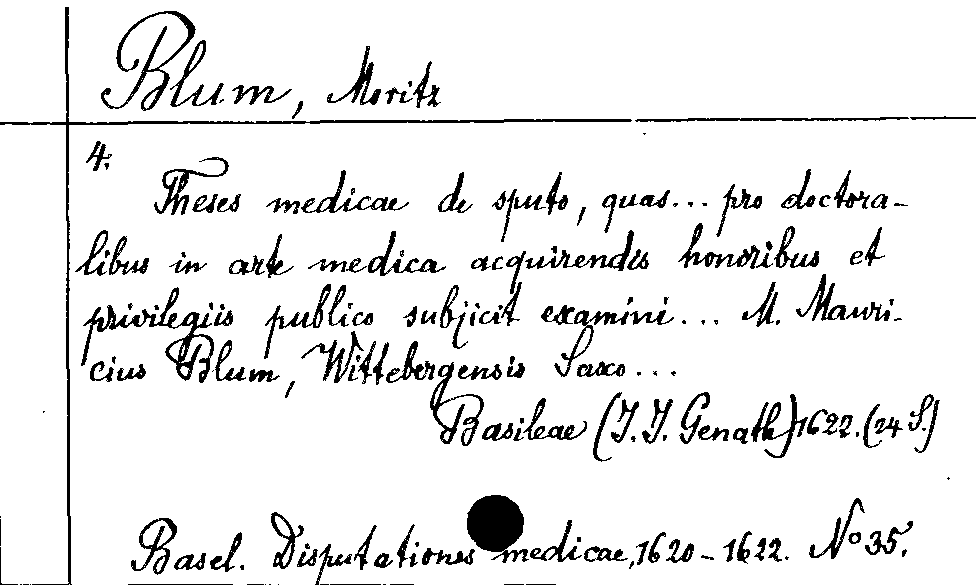 Blum, Moritz
4.
Theses medicae de sputo, quas... pro doctora-
libus in arte medica acquirendis honoribus et
privilegiis publico subjicit examini... M. Mauri-
cius Blum, Wittebergensis Saxo...
Basileae (J. J. Genath) 1622. (24 S.)
Basel. Disputationes medicae, 1620-1622. No 35.